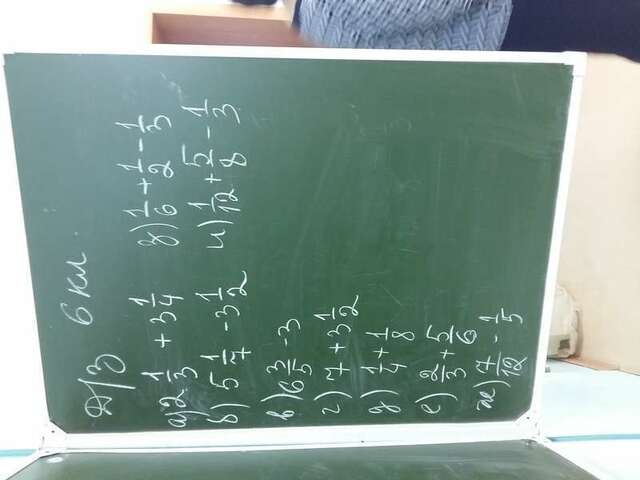 6 кл.
Д/З
а) 2 1/3 + 3 1/4
б) 5 1/7 - 3 1/2
в) 6 3/5 - 3
г) 7 + 3 1/2
д) 1/4 + 1/8
е) 2/3 + 5/6
ж) 7/12 - 1/5
з) 1/6 + 1/2 - 1/3
и) 1/12 + 5/8 - 1/3